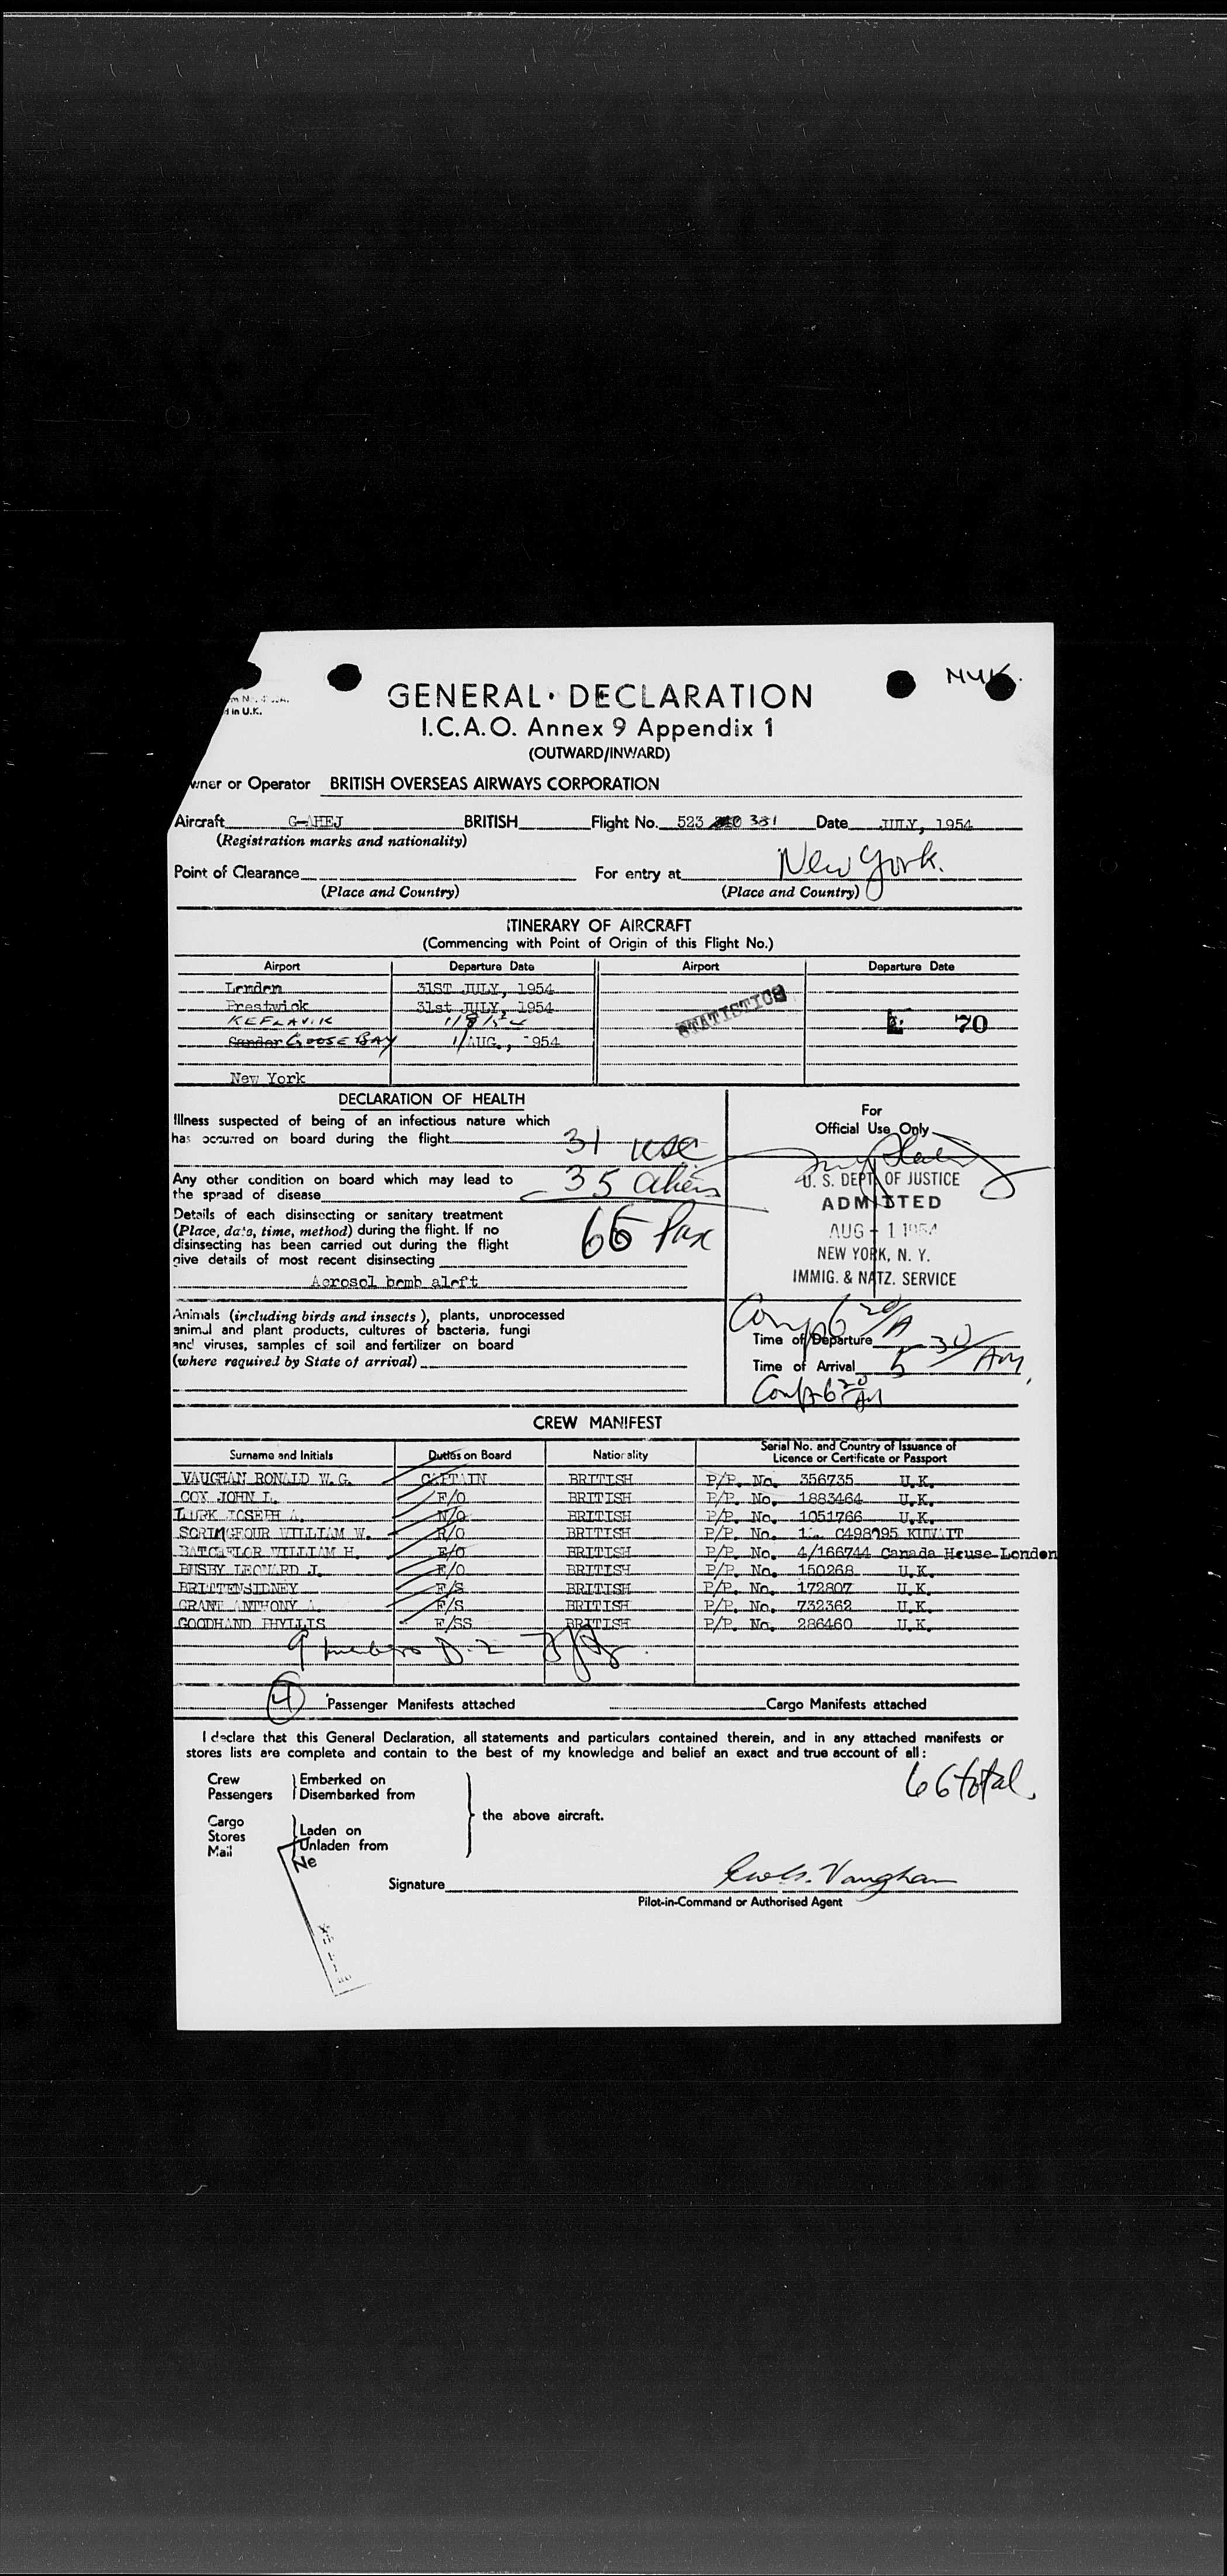 NYK.
in U.K.
GENERAL DECLARATION
I.C.A.O. Annex 9 Appendix 1
(OUTWARD/INWARD)
wner or Operator BRITISH OVERSEAS AIRWAYS CORPORATION
Aircraft G-AHEJ BRITISH Flight No. 523 331 Date JULY, 1954
(Registration marks and nationality)
Point of Clearance For entry at New York.
(Place and Country) (Place and Country)
ITINERARY OF AIRCRAFT
(Commencing with Point of Origin of this Flight No.)
Airport Departure Date Airport Departure Date
London 31ST JULY, 1954
Prestwick 31st JULY, 1954
STATISTICS
KEFLAVIK 1/8/54
70
Gander GOOSE BAY 1/AUG., 1954
New York
DECLARATION OF HEALTH
Illness suspected of being of an infectious nature which
has occurred on board during the flight 31 USC
Any other condition on board which may lead to
the spread of disease 35 aliens
Details of each disinsecting or sanitary treatment
(Place, date, time, method) during the flight. If no
disinsecting has been carried out during the flight
give details of most recent disinsecting
66 Pax
Aerosol bomb aloft
Animals (including birds and insects), plants, unprocessed
animal and plant products, cultures of bacteria, fungi
and viruses, samples of soil and fertilizer on board
(where required by State of arrival)
For
Official Use Only
U. S. DEPT. OF JUSTICE
ADMITTED
AUG - 1 1954
NEW YORK, N. Y.
IMMIG. & NATZ. SERVICE
Comp 6 20/A
Time of Departure
Time of Arrival 5 30/AM
Comp 6 20/AM
CREW MANIFEST
Surname and Initials Duties on Board Nationality Serial No. and Country of Issuance of
Licence or Certificate or Passport
VAUGHAN RONALD W.G. CAPTAIN BRITISH P/P. No. 356735 U.K.
COX JOHN L. F/O BRITISH P/P. No. 1883464 U.K.
LURK JOSEPH A. N/O BRITISH P/P. No. 1051766 U.K.
SCRIMGEOUR WILLIAM W. R/O BRITISH P/P. No. C498795 KUWAIT
BATCHELOR WILLIAM H. E/O BRITISH P/P. No. 4/166744 Canada House London
BUSBY LEONARD J. E/O BRITISH P/P. No. 150268 U.K.
BRITTEN SIDNEY F/S BRITISH P/P. No. 172807 U.K.
GRANT ANTHONY A. F/S BRITISH P/P. No. 732362 U.K.
GOODHAND PHYLLIS F/SS BRITISH P/P. No. 286460 U.K.
9 members D-2
4 Passenger Manifests attached Cargo Manifests attached
I declare that this General Declaration, all statements and particulars contained therein, and in any attached manifests or
stores lists are complete and contain to the best of my knowledge and belief an exact and true account of all:
66 total
Crew Embarked on
Passengers Disembarked from
the above aircraft.
Cargo
Stores Laden on
Mail Unladen from
Ne
Signature Vaughan
Pilot-in-Command or Authorised Agent